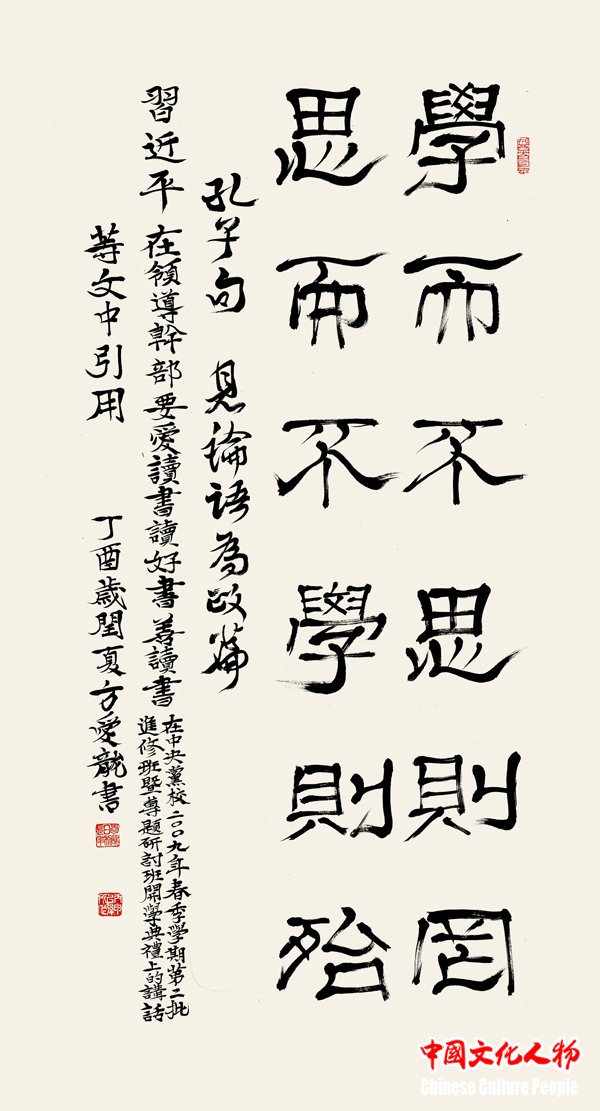 學而不思則罔
思而不學則殆
孔子句 見論語為政篇
習近平在領導幹部要愛讀書讀好書善讀書
在中央黨校二〇〇九年春季學期第二批
進修班暨專題研討班開學典禮上的講話
等文中引用 丁酉歲閏夏方愛龍書
中國文化人物
Chinese Culture People